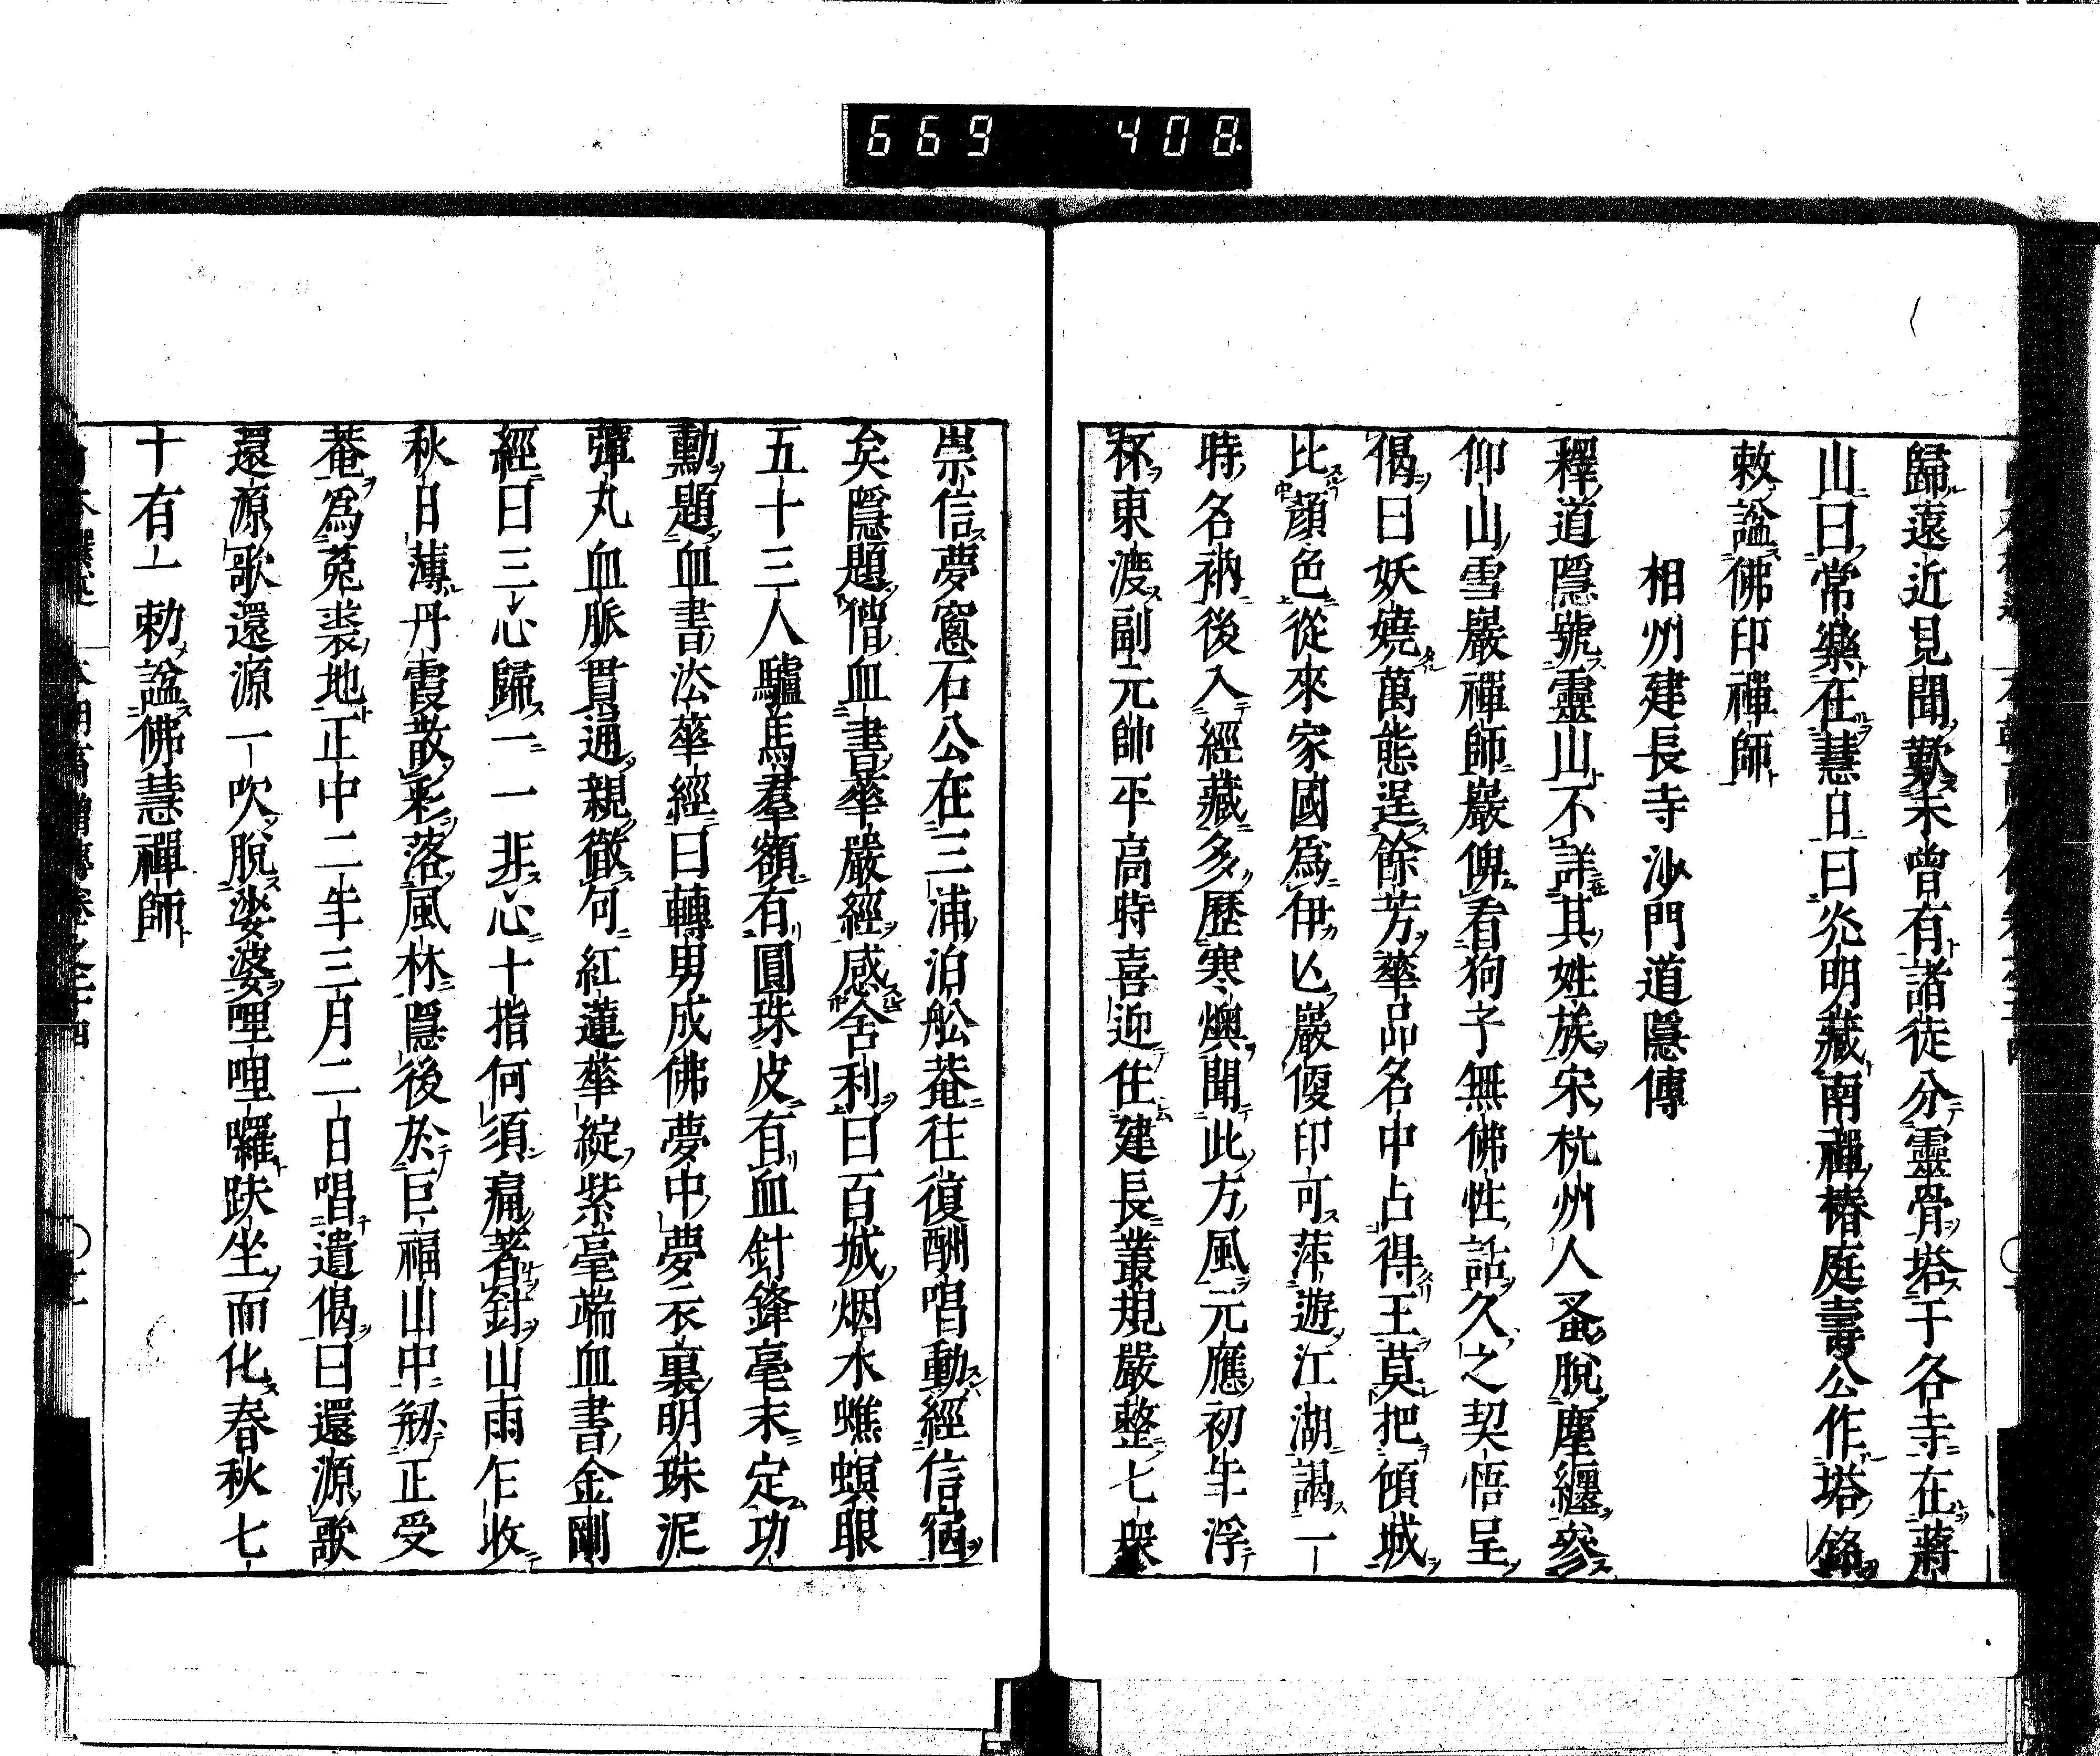 669 408
歸遠近見聞歎未曾有諸徒分靈骨塔于各寺在蔣
山曰常樂在慧日曰光明藏南禪椿庭壽公作塔銘
敕諡佛印禪師
相州建長寺沙門道隱傳
釋道隱號靈山不詳其姓族宋杭州人蚤脫塵纏參
仰山雪巖禪師巖俾看狗子無佛性話久之契悟呈
偈曰妖嬈萬態逞餘芳華品名中占得王莫把傾城
比顏色從來家國爲伊亾巖優印可萍遊江湖謁一
時名衲後入經藏多歷寒燠聞此方風元應初年浮
杯東渡副元帥平高時喜迎住建長叢規嚴整七衆
崇信夢窻石公在三浦泊舩菴往復酬唱動經信宿
矣隱題僧血書華嚴經感舍利曰百城烟水蟭螟眼
五十三人驢馬羣額有圓珠皮有血針鋒毫末定功
勳題血書法華經曰轉男成佛夢中夢衣裏明珠泥
彈丸血脈貫通親徹句紅蓮華綻紫毫端血書金剛
經曰三心歸一一非心十指何須痛著針山雨乍收
秋日薄丹霞散彩落風林隱後於巨福山中剏正受
菴爲菟裘地正中二年三月二日唱遺偈曰還源歌
還源歌還源一吹脫娑婆哩哩囉趺坐而化春秋七
十有一勅諡佛慧禪師